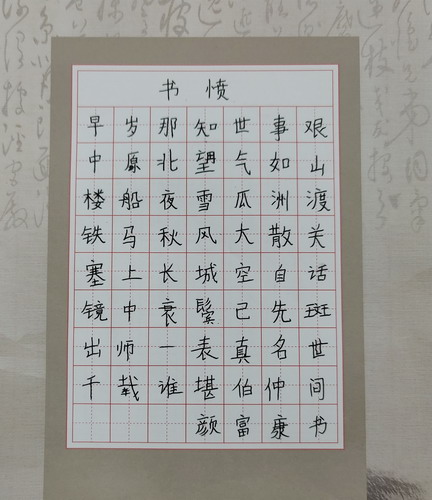 书愤
早岁那知世事艰
中原北望气如山
楼船夜雪瓜洲渡
铁马秋风大散关
塞上长城空自话
镜中衰鬓已先斑
出师一表真名世
千载谁堪伯仲间
颜富康书